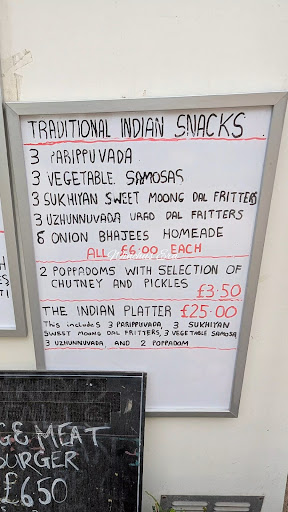 TRADITIONAL INDIAN SNACKS
3 PARIPPUVADA
3 VEGETABLE SAMOSAS
3 SUKHIYAN SWEET MOONG DAL FRITTERS
3 UZHUNNUVADA URAD DAL FRITTERS
6 ONION BHAJEES HOMEADE
ALL £6.00 EACH
2 POPPADOMS WITH SELECTION OF
CHUTNEY AND PICKLES
£3.50
THE INDIAN PLATTER £25.00
This includes 3 PARIPPUVADA, 3 SUKHIYAN
SWEET MOONG DAL FRITTERS, 3 VEGETABLE SAMOSA
3 UZHUNNUVADA, AND 2 POPPADOM
GE MEAT
BURGER
£650